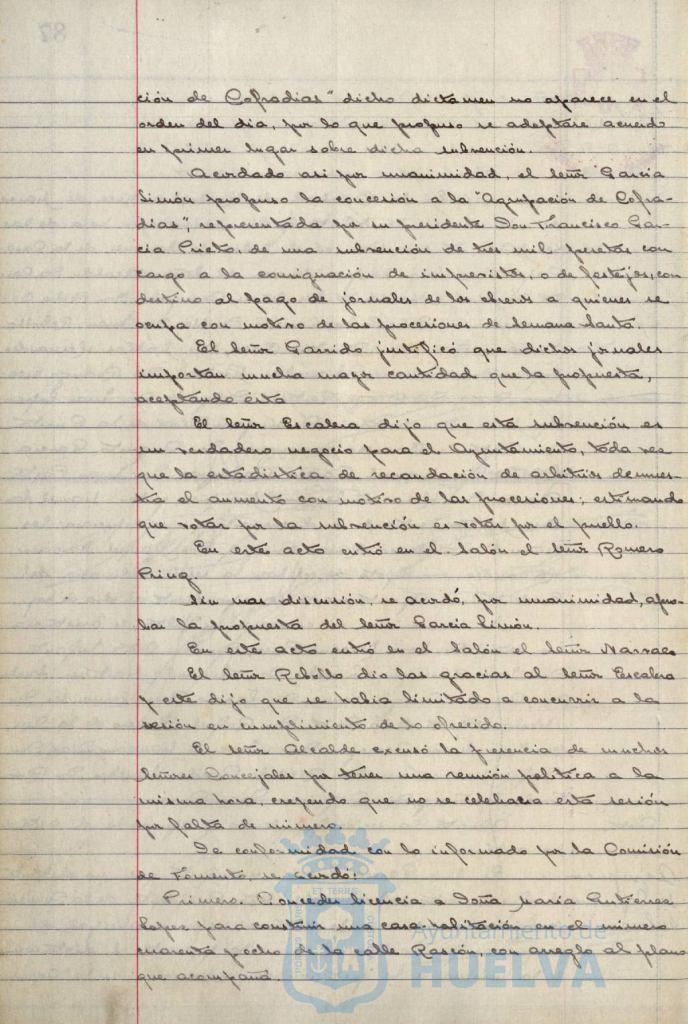 ción de Cofradias" dicho dictamen no aparece en el
orden del dia, por lo que propuso se adoptase acuerdo
en primer lugar sobre dicha subvención.
Acordado asi por unanimidad, el señor Garcia
Simón propuso la concesión a la "Agrupación de Cofra-
dias", representada por su presidente Don Francisco Gar-
cia Prieto, de una subvención de tres mil pesetas con
cargo a la consignación de imprevistos, o de festejos, con
destino al pago de jornales de los obreros a quienes se
ocupa con motivo de las procesiones de Semana Santa.
El señor Garrido justificó que dichos jornales
importan mucha mayor cantidad que la propuesta,
aceptando ésta
El señor Escalera dijo que esta subvención es
un verdadero negocio para el Ayuntamiento, toda vez
que la estadistica de recaudación de arbitrios demues-
tra el aumento con motivo de las procesiones; estimando
que votar por la subvención es votar por el pueblo.
En este acto entró en el Salón el señor Romero
Prinz.
Sin mas discusión, se acordó, por unanimidad, apro-
bar la propuesta del señor Garcia Simón.
En este acto entró en el Salón el señor
El señor Rebollo dio las gracias al señor Escalera
y este dijo que se habia limitado a concurrir a la
sesión en cumplimiento de lo ofrecido.
El señor Alcalde excusó la presencia de muchos
señores Concejales por tener una reunión politica a la
misma hora, creyendo que no se celebraria esta sesión
por falta de número.
De conformidad con lo informado por la Comisión
de Fomento, se acordó:
Primero. Conceder licencia a Doña Maria Gutierrez
Lopez para construir una casa habitación en el número
cuarenta y ocho de la calle Rascón, con arreglo al plano
que acompaña.
Ayuntamiento de
HUELVA